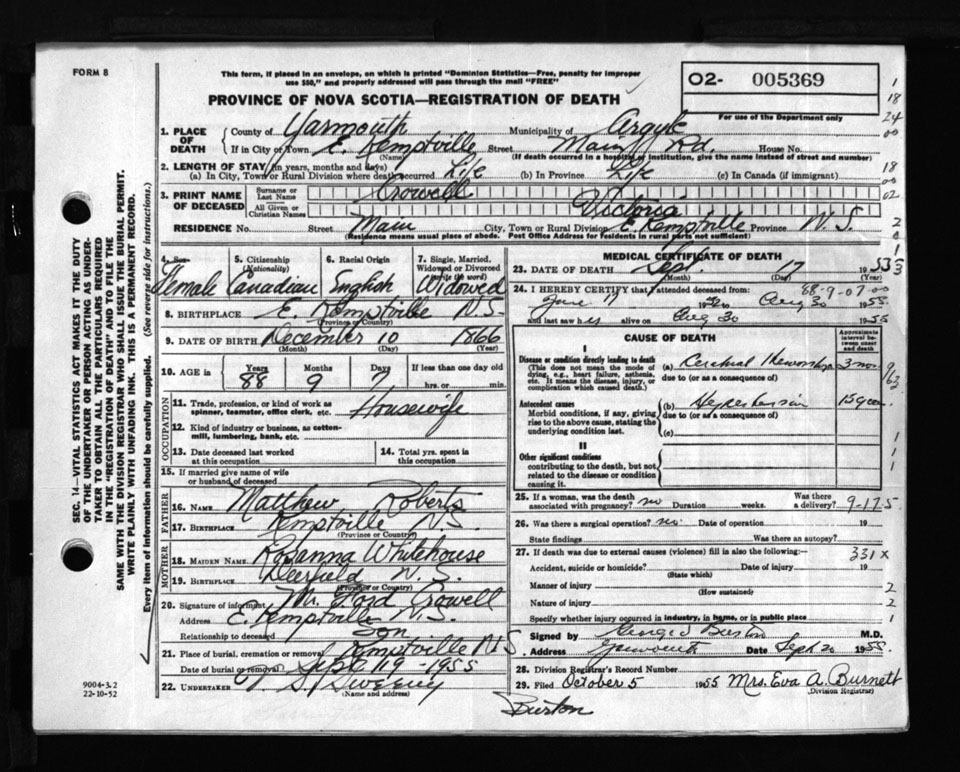 FORM 8
This form, if placed in an envelope, on which is printed "Dominion Statistics—Free, penalty for improper
use $50," and properly addressed will pass through the mail "FREE"
PROVINCE OF NOVA SCOTIA—REGISTRATION OF DEATH
02- 005369
For use of the Department only
1
18
24
00
18
00
02
2
SEC. 14—VITAL STATISTICS ACT MAKES IT THE DUTY
OF THE UNDERTAKER OR PERSON ACTING AS UNDER-
TAKER TO OBTAIN ALL THE PARTICULARS REQUIRED
IN THE "REGISTRATION OF DEATH" AND TO FILE THE
SAME WITH THE DIVISION REGISTRAR WHO SHALL ISSUE THE BURIAL PERMIT.
WRITE PLAINLY WITH UNFADING INK. THIS IS A PERMANENT RECORD.
Every item of information should be carefully supplied. (See reverse side for instructions.)
1. PLACE OF DEATH County of Yarmouth Municipality of Argyle
If in City or Town E. Kemptville (Name) Street Main Rd. House No.
(If death occurred in a hospital or institution, give the name instead of street and number)
2. LENGTH OF STAY (in years, months and days)
(a) In City, Town or Rural Division where death occurred Life (b) In Province Life (c) In Canada (if immigrant)
3. PRINT NAME OF DECEASED Surname or Last Name Crowell
All Given or Christian Names Victoria
RESIDENCE No. Street Main City, Town or Rural Division E. Kemptville Province N.S.
(Residence means usual place of abode. Post Office Address for residents in rural parts not sufficient)
4. Sex 5. Citizenship (Nationality) 6. Racial Origin 7. Single, Married, Widowed or Divorced (write the word)
Female Canadian English Widowed
8. BIRTHPLACE E. Kemptville N.S.
(Province or Country)
9. DATE OF BIRTH December 10 1866
(Month) (Day) (Year)
10. AGE in Years Months Days If less than one day
88 9 7 hrs. or min.
OCCUPATION
11. Trade, profession, or kind of work as
spinner, teamster, office clerk, etc. Housewife
12. Kind of industry or business, as cotton-
mill, lumbering, bank, etc.
13. Date deceased last worked
at this occupation
14. Total yrs. spent in
this occupation
15. If married give name of wife
or husband of deceased
FATHER
16. Name Matthew Roberts
17. Birthplace Kemptville N.S.
(Province or Country)
MOTHER
18. MAIDEN NAME Rosanna Whitehouse
19. BIRTHPLACE Deerfield N.S.
(Province or Country)
20. Signature of informant Mr. Ford Crowell
Address E. Kemptville N.S.
Relationship to deceased Son
21. Place of burial, cremation or removal Kemptville N S
Date of burial or removal Sept 19-1955
22. UNDERTAKER V. S. Sweeny
(Name and address)
9004-3.2
22-10-52
MEDICAL CERTIFICATE OF DEATH
23. DATE OF DEATH Sept. 17 1955
(Month) (Day)
24. I HEREBY CERTIFY that I attended deceased from: 88-9-07-00
June 17 19 to Aug 30 1955
and last saw her alive on Aug 30 1955
CAUSE OF DEATH
Approximate interval between onset and death
I
Disease or condition directly leading to death
(This does not mean the mode of dying, e.g., heart failure, asthenia, etc. It means the disease, injury, or complication which caused death.
(a) Cerebral
due to (or as a consequence of)
3 mos
963
Antecedent causes
Morbid conditions, if any, giving rise to the above cause, stating the underlying condition last.
(b) Hypertension 15 years
due to (or as a consequence of)
(c)
II
Other significant conditions
contributing to the death, but not related to the disease or condition causing it.
1
1
1
25. If a woman, was the death
associated with pregnancy? no Duration weeks. Was there a delivery? 9-17-5
26. Was there a surgical operation? no Date of operation 19
State findings Was there an autopsy?
27. If death was due to external causes (violence) fill in also the following:—
331X
Accident, suicide or homicide? Date of injury 19
(State which)
Manner of injury 2
(How sustained)
Nature of injury 2
Specify whether injury occurred in industry, in home, or in public place 1
Signed by George Burton M.D.
Address Yarmouth Date Sept 20 1955.
28. Division Registrar's Record Number
29. Filed October 5 1955 Mrs. Eva A. Burnett
(Division Registrar)
Burton